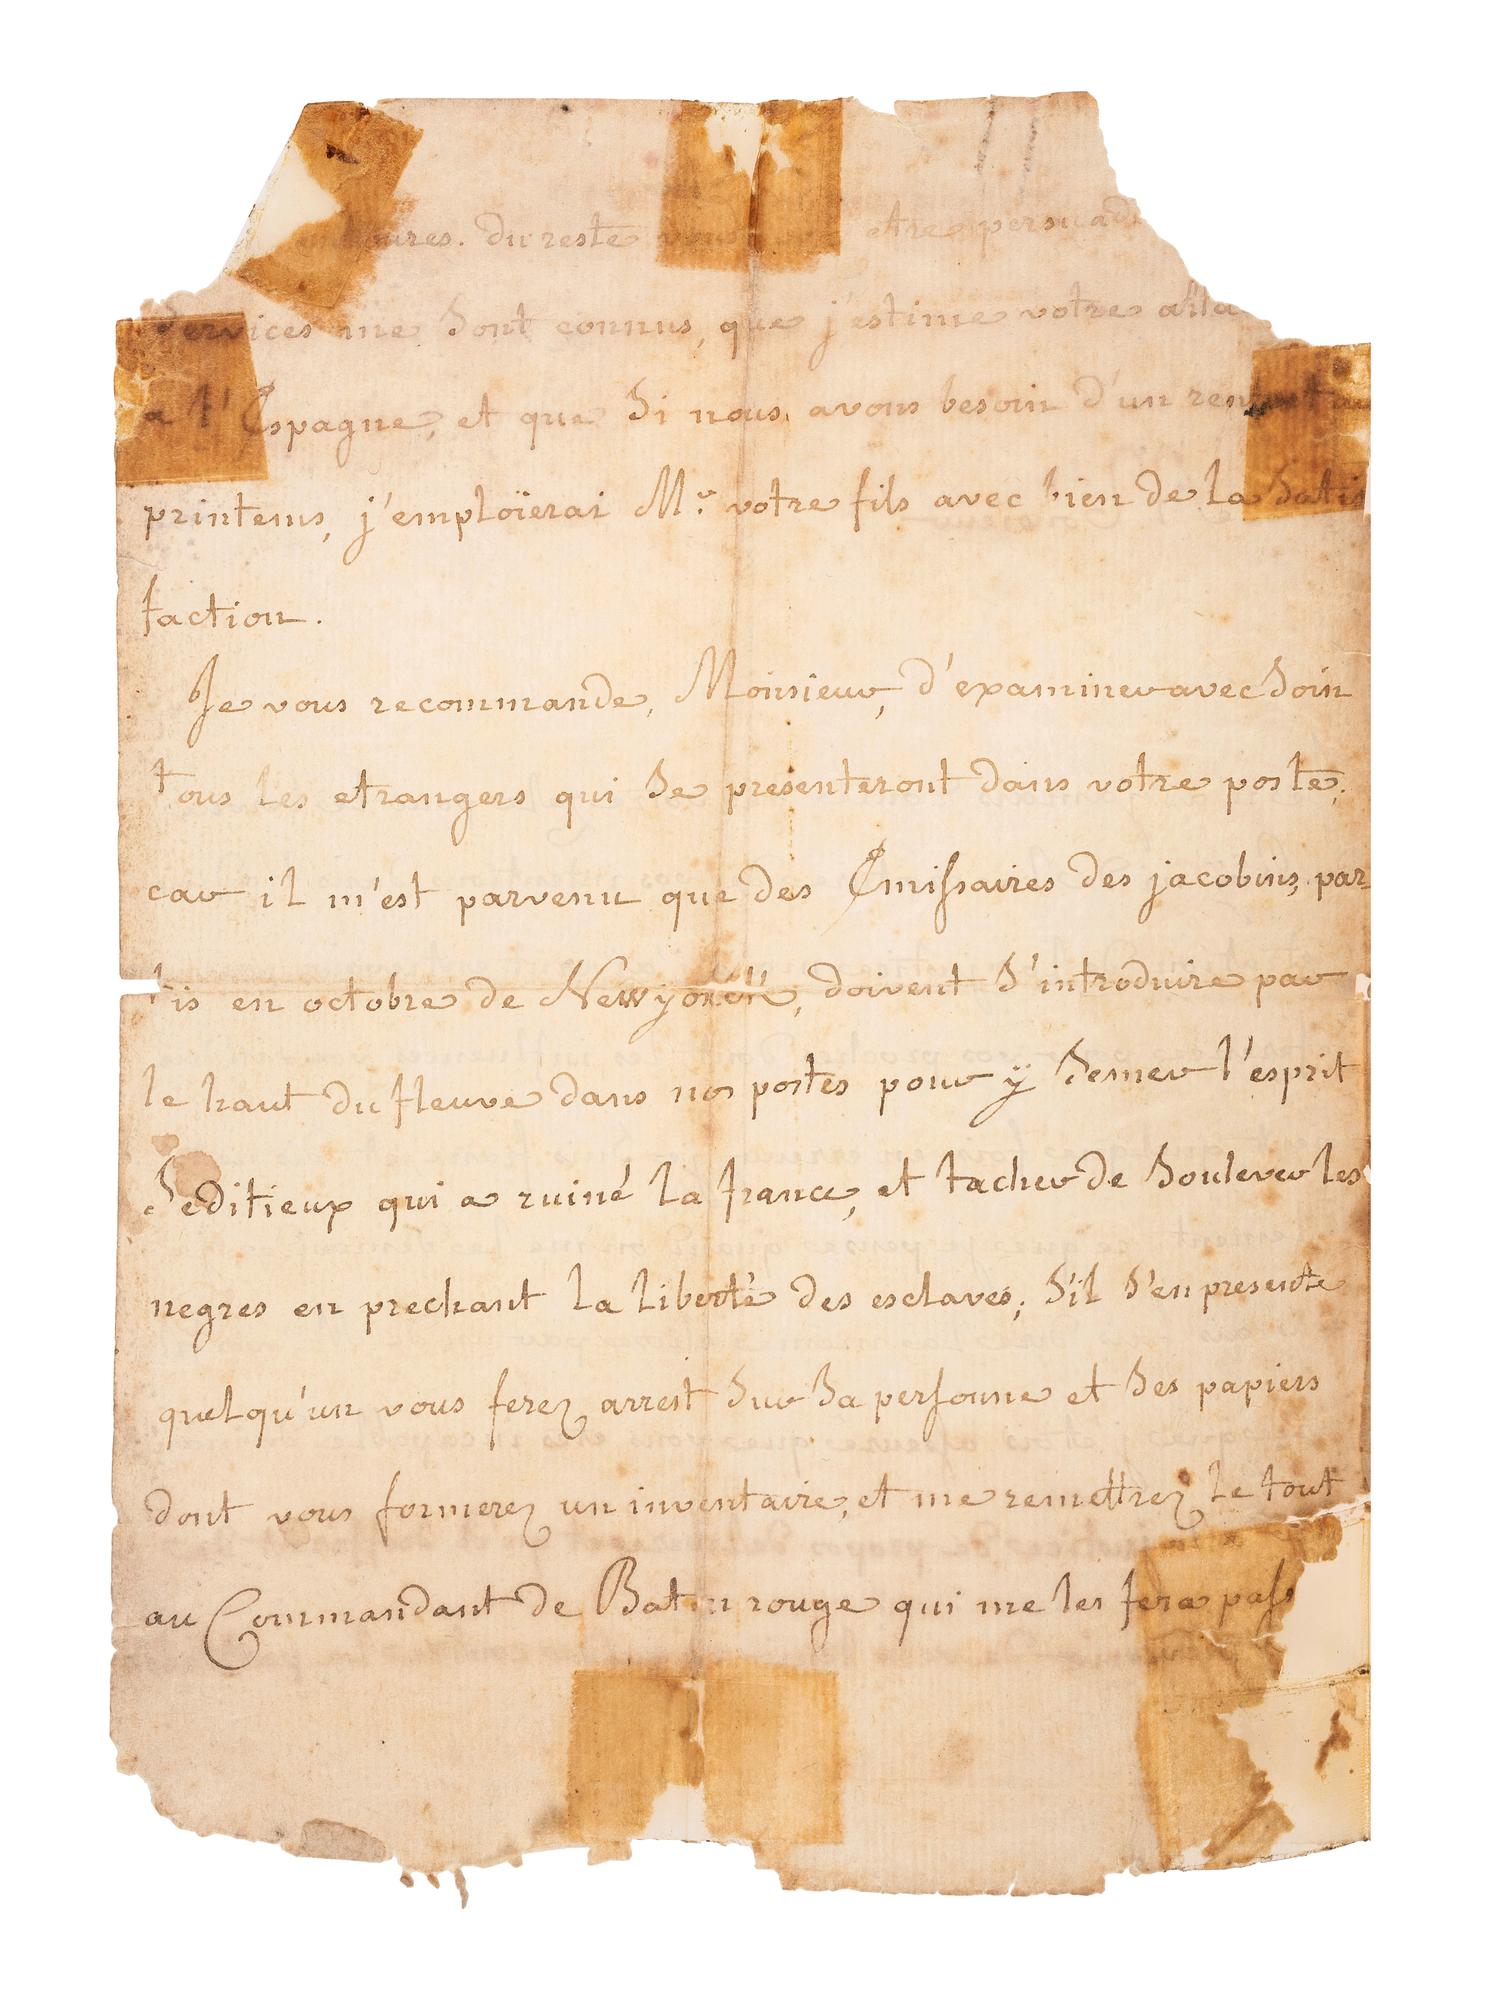 du reste etre persuad
services me sont connus, que j'estime votre atta
a l'Espagne, et que si nous avons besoin d'un
printems, j'emploïerai Mr. votre fils avec bien de la satis
faction.
Je vous recommande, Monsieur, d'examiner avec soin
tous les etrangers qui se presenteront dans votre poste,
car il m'est parvenu que des Emissaires des jacobins, par
tis en octobre de Newyorck, doivent s'introduire par
le haut du fleuve dans nos postes pour ÿ semer l'esprit
seditieux qui a ruiné la france, et tacher de soulever les
negres en prechant la liberté des esclaves; s'il s'en presente
quelqu'un vous ferez arrest sur sa personne et ses papiers
dont vous formerez un inventaire, et me remettrez le tout
au Commandant de Baton rouge qui me les fera pass